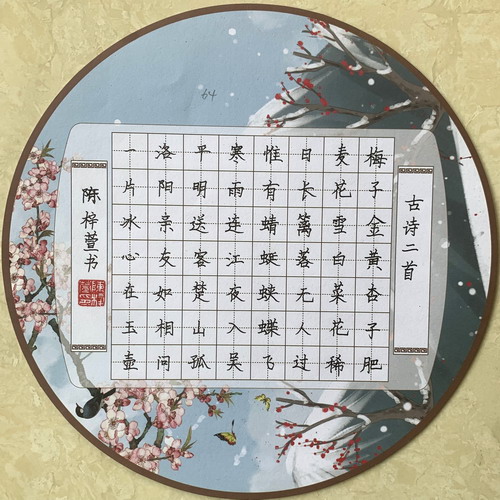 64
古诗二首
梅子金黄杏子肥
麦花雪白菜花稀
日长篱落无人过
惟有蜻蜓蛱蝶飞
寒雨连江夜入吴
平明送客楚山孤
洛阳亲友如相问
一片冰心在玉壶
陈梓萱书